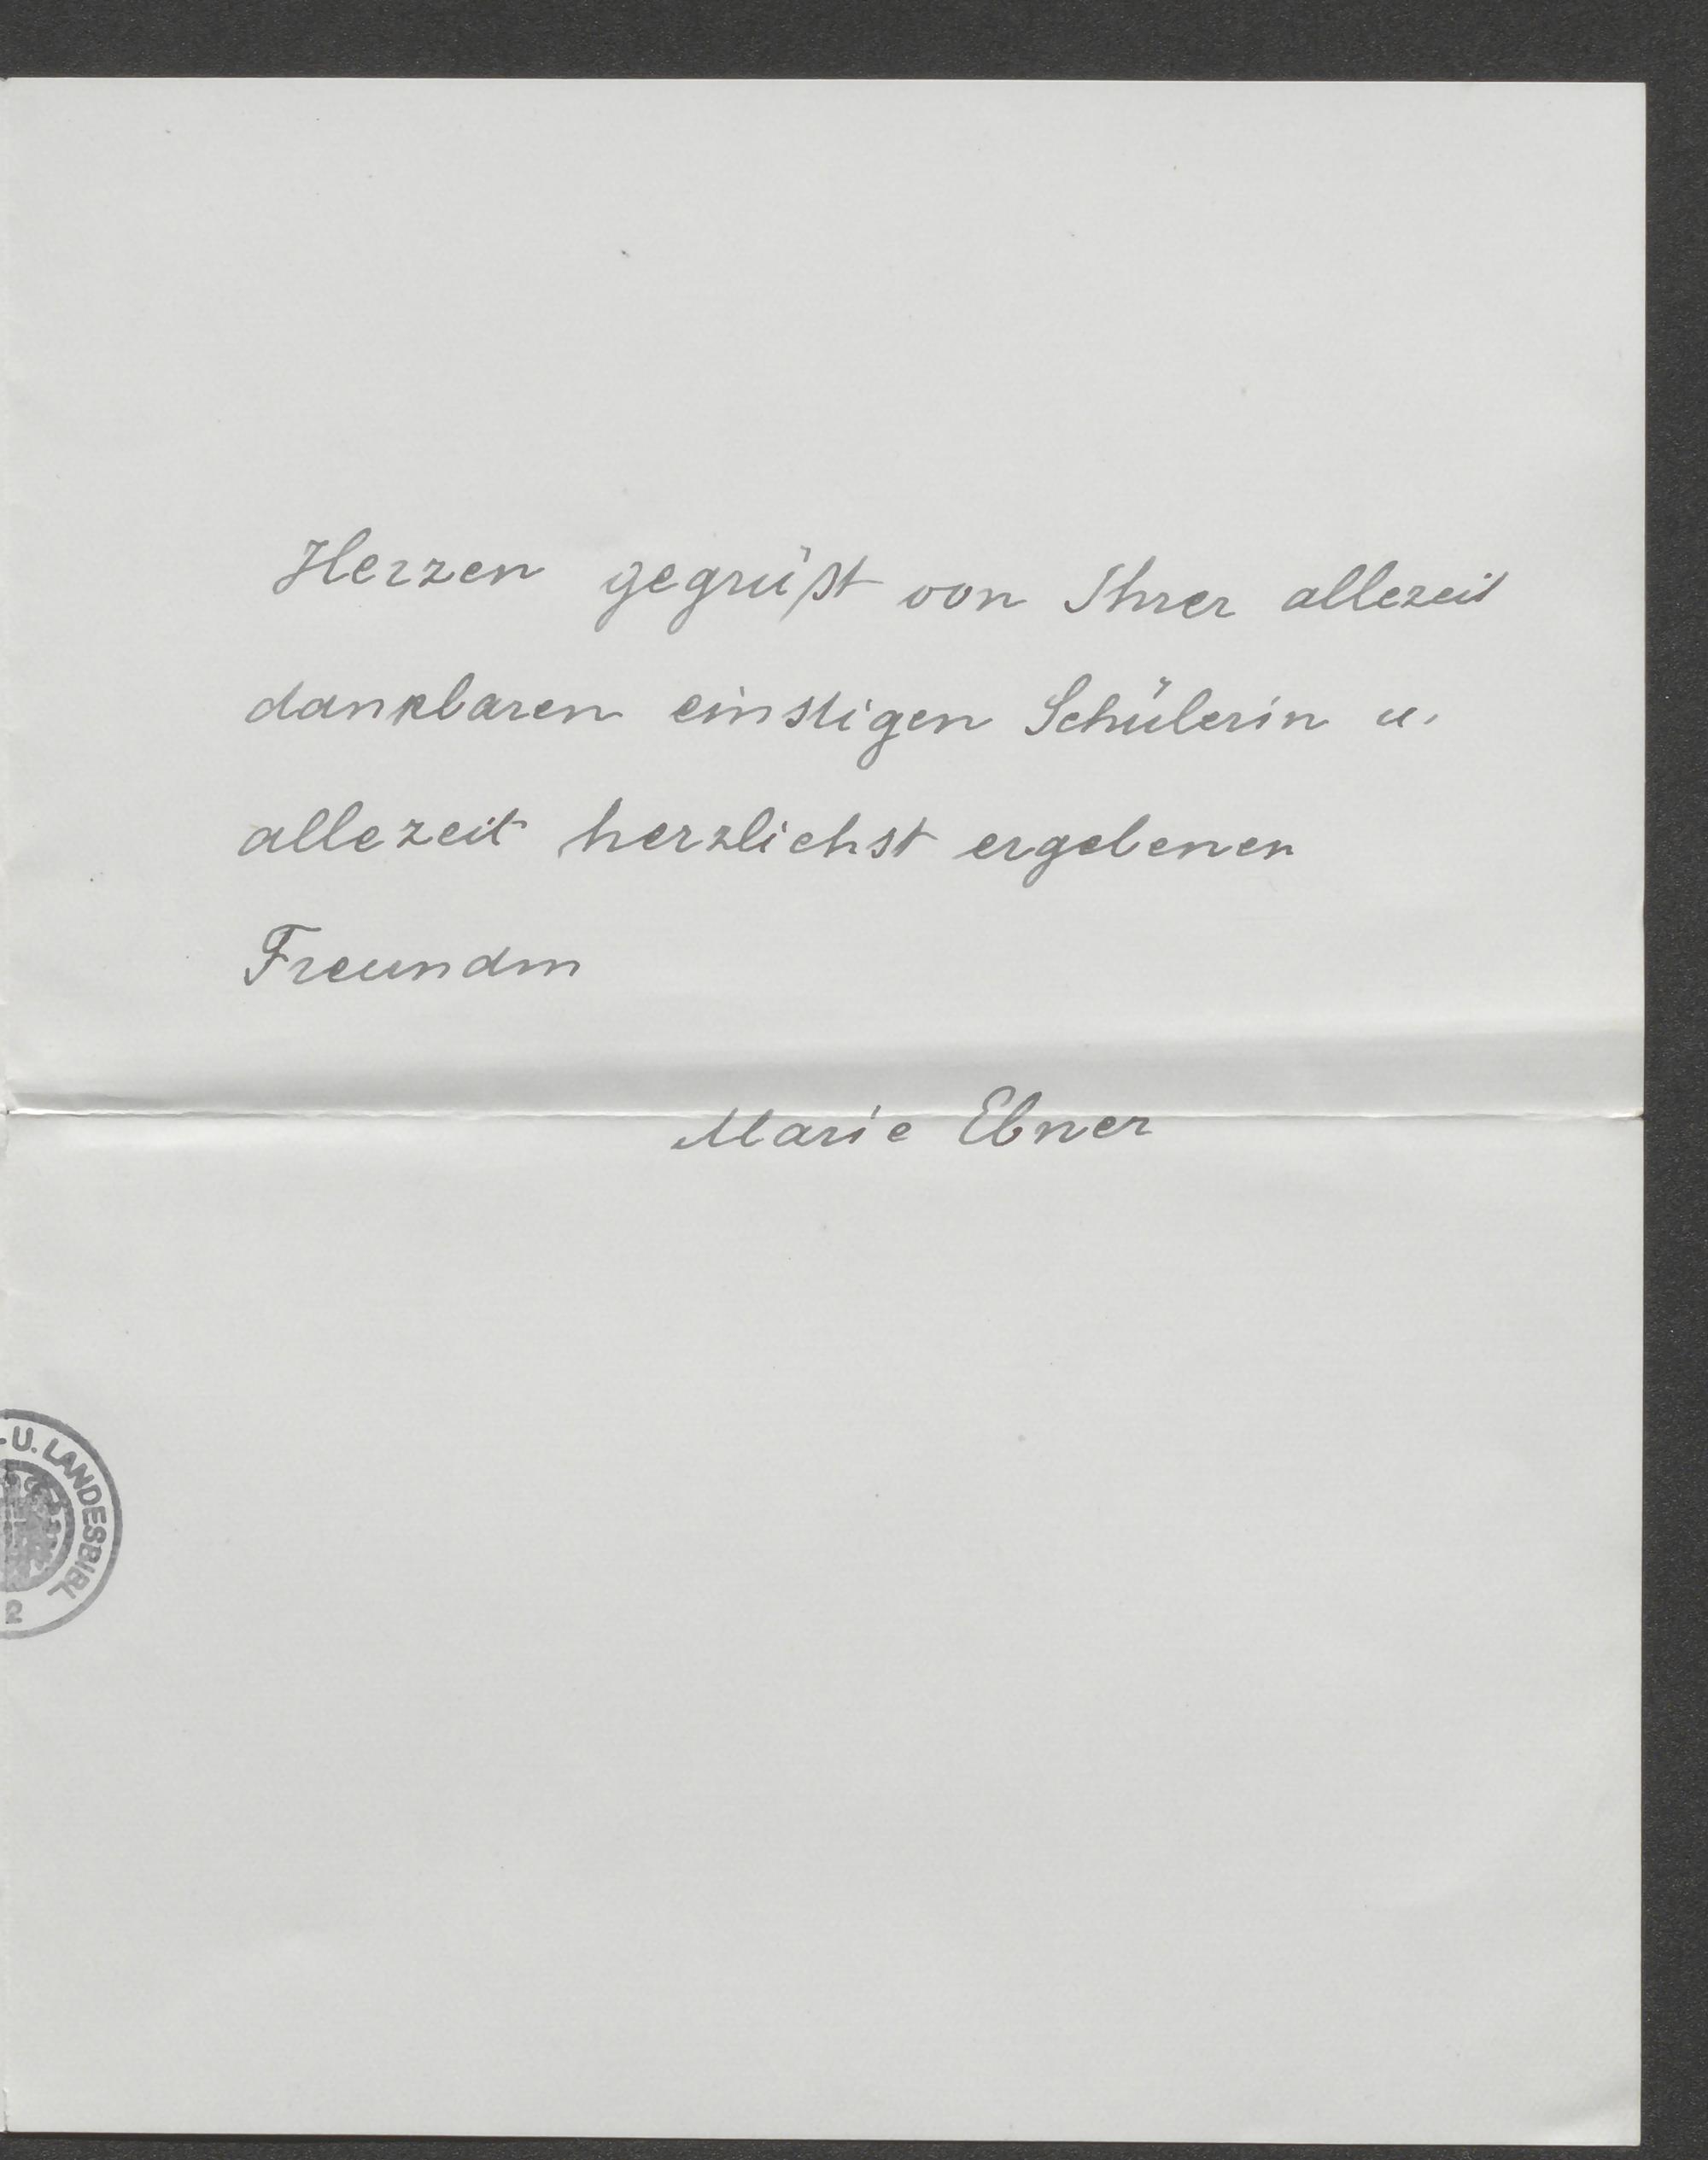 Herzen gegrüßt von Ihrer allezeit
dankbaren einstigen Schülerin u.
allezeit herzlichst ergebenen
Freundin
Marie Ebner
-U. LANDESBIBL
2